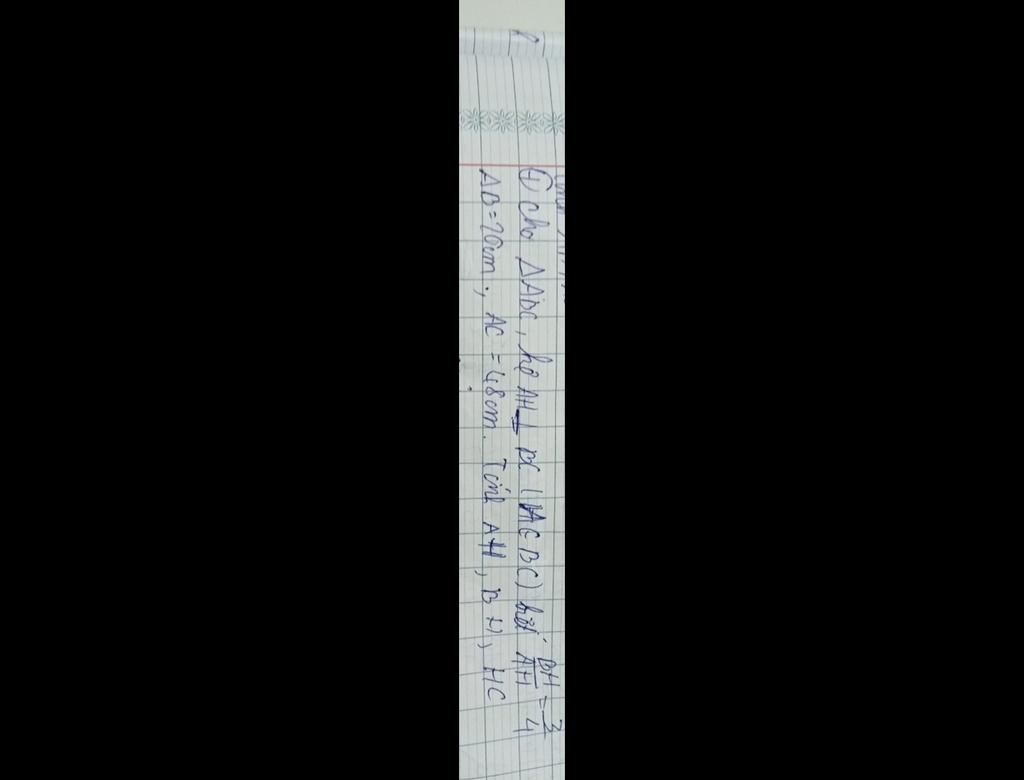 ① Cho ΔABC, kẻ AH ⊥ BC (H ∈ BC) biết BH/AH = 3/4
AB = 20cm; AC = 48cm. Tính AH, BH, HC